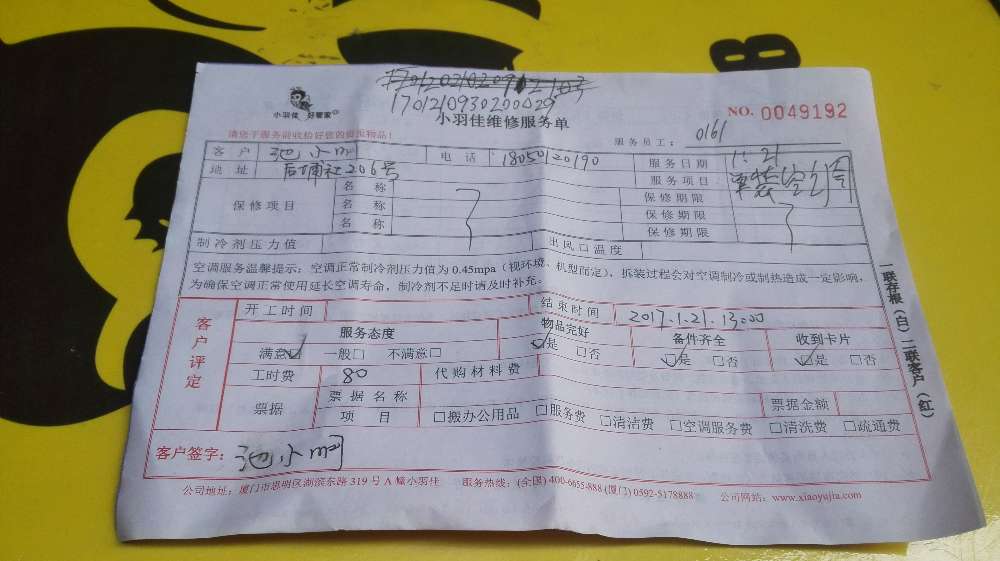 1701210930200029
小羽佳 好管家
小羽佳维修服务单
NO. 0049192
请您于服务前收拾好您的贵重物品！
服务员工： 0161
客户 池小 电话 18050120190 服务日期 1.21
地址 后埔社206号 服务项目 单装空
保修项目 名称 保修期限
名称 保修期限
名称 保修期限
制冷剂压力值 出风口温度
空调服务温馨提示：空调正常制冷剂压力值为0.45mpa（视环境、机型而定），拆装过程会对空调制冷或制热造成一定影响，
为确保空调正常使用延长空调寿命，制冷剂不足时请及时补充。
客户评定
开工时间 结束时间 2017.1.21.13:00
服务态度 物品完好 备件齐全 收到卡片
满意☑ 一般□ 不满意□ ☑是 □否 ☑是 □否 ☑是 □否
工时费 80 代购材料费
票据 票据名称 票据金额
项目 □搬办公用品 □服务费 □清洁费 □空调服务费 □清洗费 □疏通费
客户签字： 池小
一联存根（白）二联客户（红）
公司地址：厦门市思明区湖滨东路319号A幢小羽佳 服务热线：(全国) 400-6655-888 (厦门) 0592-5178888 公司网站：www.xiaoyujia.com